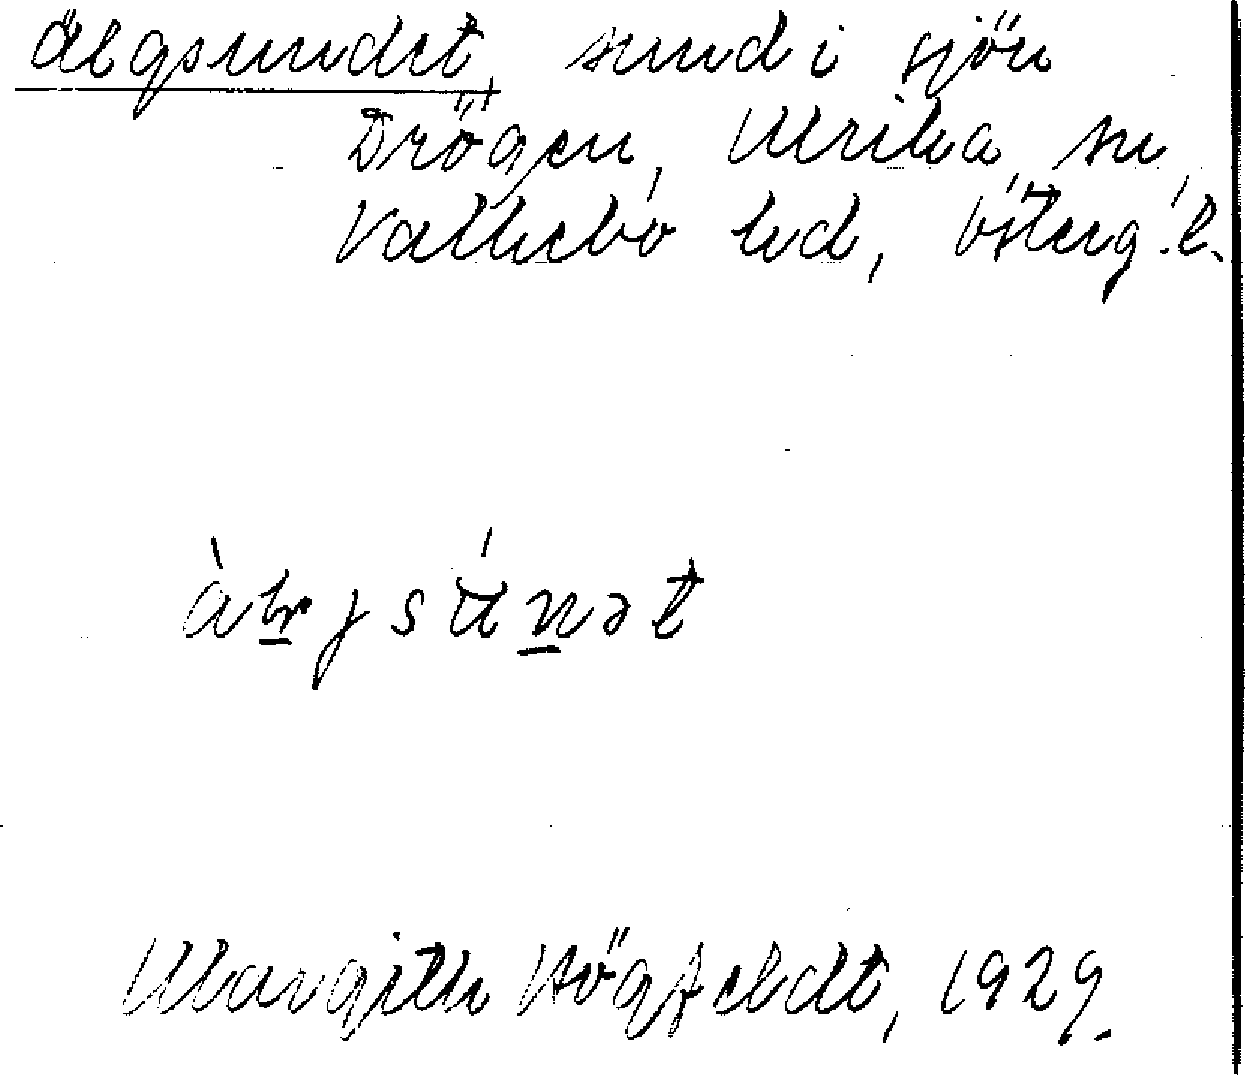 Älgsundet, sund i sjön
Drögen, Ulrika sn,
Valkebo hd, Österg. l.
Margith Högfeldt, 1929.